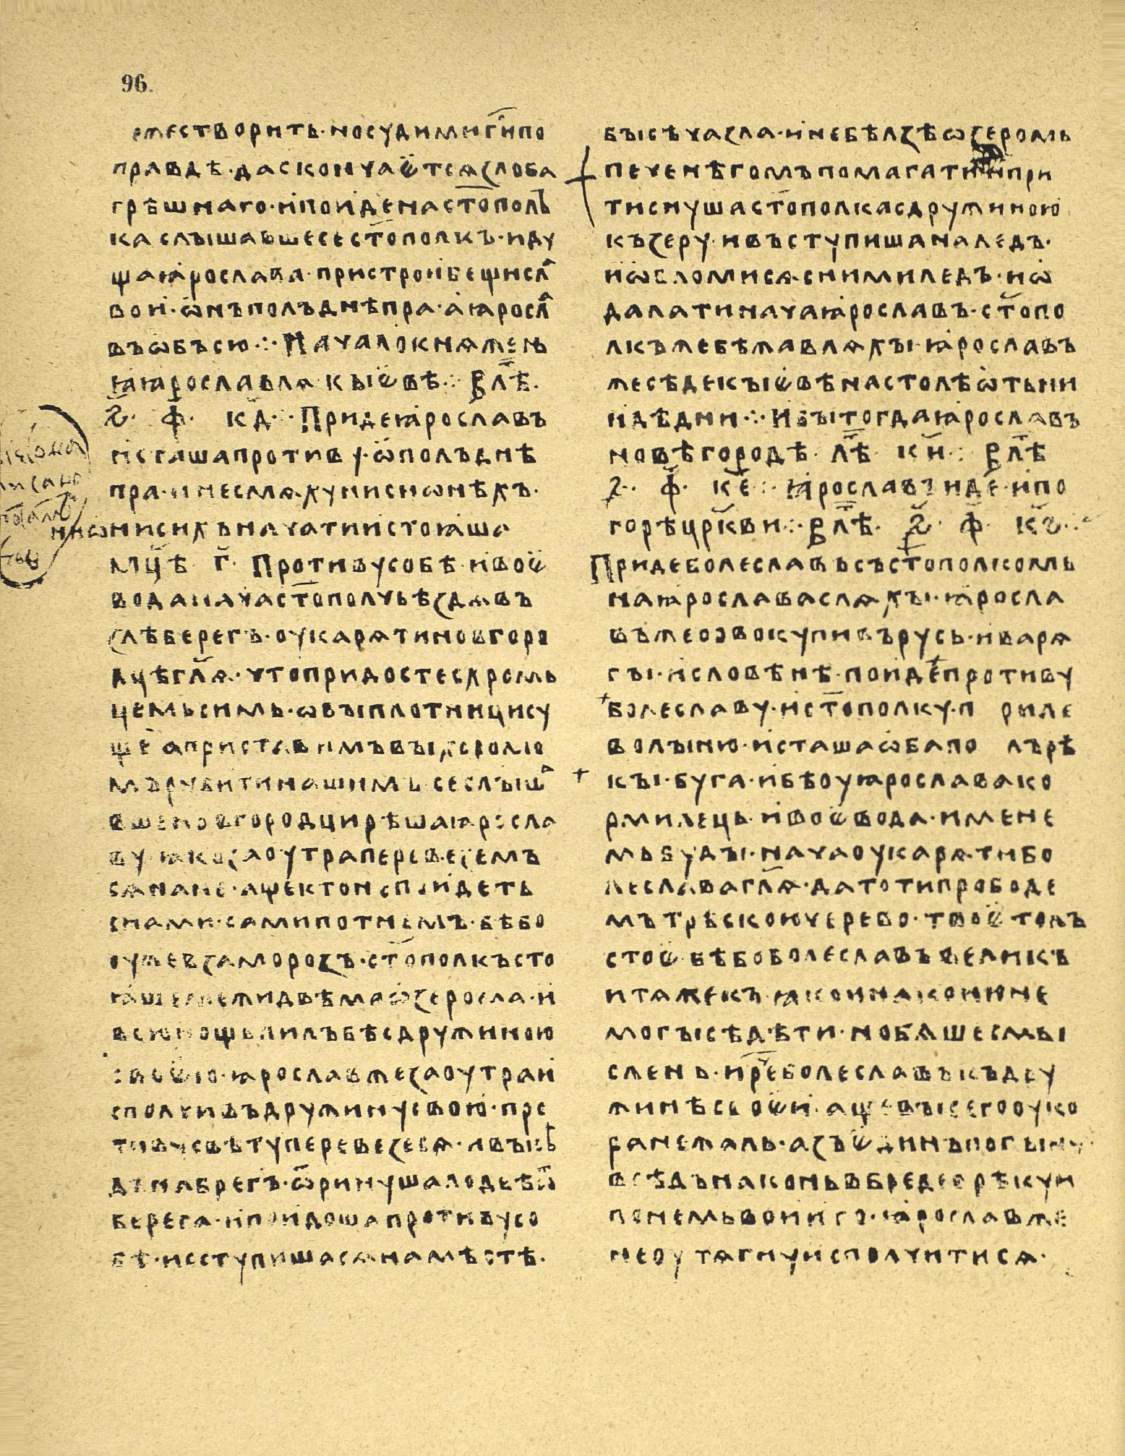 96.
ѫестворить· но суди ми г҃и по
правдѣ· да сконѵаѥ̈тсѧ злоба
грѣшнаго· и поиде на ст҃опол
ка слышавше се ст҃ополкъ· иду
ща ꙗрослава· пристрои бещисл
вои· ѡ̈нъ полъ днѣпра· а ꙗросл
въ ѡбъ сю ⁘ Наѵало кнѧжень
ꙗ ꙗрославлѧ кыѥвѣ ⁘ В лѣ҃·
҂ѕ҃· ф҃· кд҃· Приде ꙗрославъ
и сташа противу· ѡ̈ полъ днѣ
пра· и не смѧху ни си ѡнѣхъ·
ни ѡни сихъ наѵати и стоꙗша
мц҃ѣ г҃ Противу собѣ· и воѥ
вода наѵа ст҃ополѵь ѣздѧ въ
злѣ берегъ· укарѧти новгоро
дцѣ гл҃ѧ· ѵто придосте с хромь
цемь симь· ѡ вы плотници су
ще· а приставимъ вы хоромо
мъ рубити нашимъ· се слыш
вше новгородци рѣша ꙗросла
ву· ꙗко заоутра перевеземъ
сѧ на не· аще кто не поидеть
с нами· сами потнемъ· бѣ бо
оуже в заморозъ· ст҃ополкъ сто
ꙗше межи двѣма ѡзерома· и
всю нощь пилъ бѣ с дружиною
своѥю· ꙗрослав же заоутра и
сполѵивъ дружину свою· про
тиву свѣту перевезесѧ· и высѣ
дъ на брегъ· ѿринуша лодьѣ ѿ
берега· и поидоша противу со
бѣ· и сступишасѧ на мѣстѣ·
бы сѣѵа зла· и не бѣ лзѣ ѡзеромь
пеѵенѣгомъ помагати и при
тиснуша ст҃ополка с дружиною
къ зеру· и въступиша на ледъ·
и ѡбломисѧ с ними ледъ· и ѡ
далати наѵа ꙗрославъ· ст҃опо
лкъ же бѣжа в лѧхы· ꙗрославъ
же сѣде кыѥвѣ на столѣ ѡтьни
и дѣдни ⁘ И бы тогда ꙗрославъ
новѣгородѣ лѣ҃ ки҃ ⁘ В лѣ҃
҂ѕ҃· ф҃· ке҃ ⁘ ꙗрославъ иде· и по
горѣ црк҃ви ⁘ В лѣ҃· ҂ѕ҃· ф҃· кѕ҃ ⁘
Приде болеславъ съ ст҃ополкомь
на ꙗрослава с лѧхы· ꙗросла
въ же совокупивъ русь· и варѧ
гы· и словѣнѣ· поиде противу
болеславу· и ст҃ополку· приде
волыню· и сташа ѡба пол рѣ
кы· буга· и бѣ оу ꙗрослава ко
рмилець· и воѥвода· имене
мь буды· наѵа оукарѧти бо
леслава гл҃ѧ· да то ти прободе
мъ трѣскою ѵерево· твоѥ толъ
стоѥ· бѣ бо болеславъ великъ
и тѧжекъ· ꙗко и на кони не
могы сѣдѣти· но бѧше смы
сленъ· и ре҃ болеславъ къ дру
жинѣ своѥи· аще вы сего оуко
ра не жаль· азъ ѥдинъ погыну
всѣдъ на конь вбреде в рѣку и
по немь вои ѥго· ꙗрослав же
не оутѧгну исполѵитисѧ·